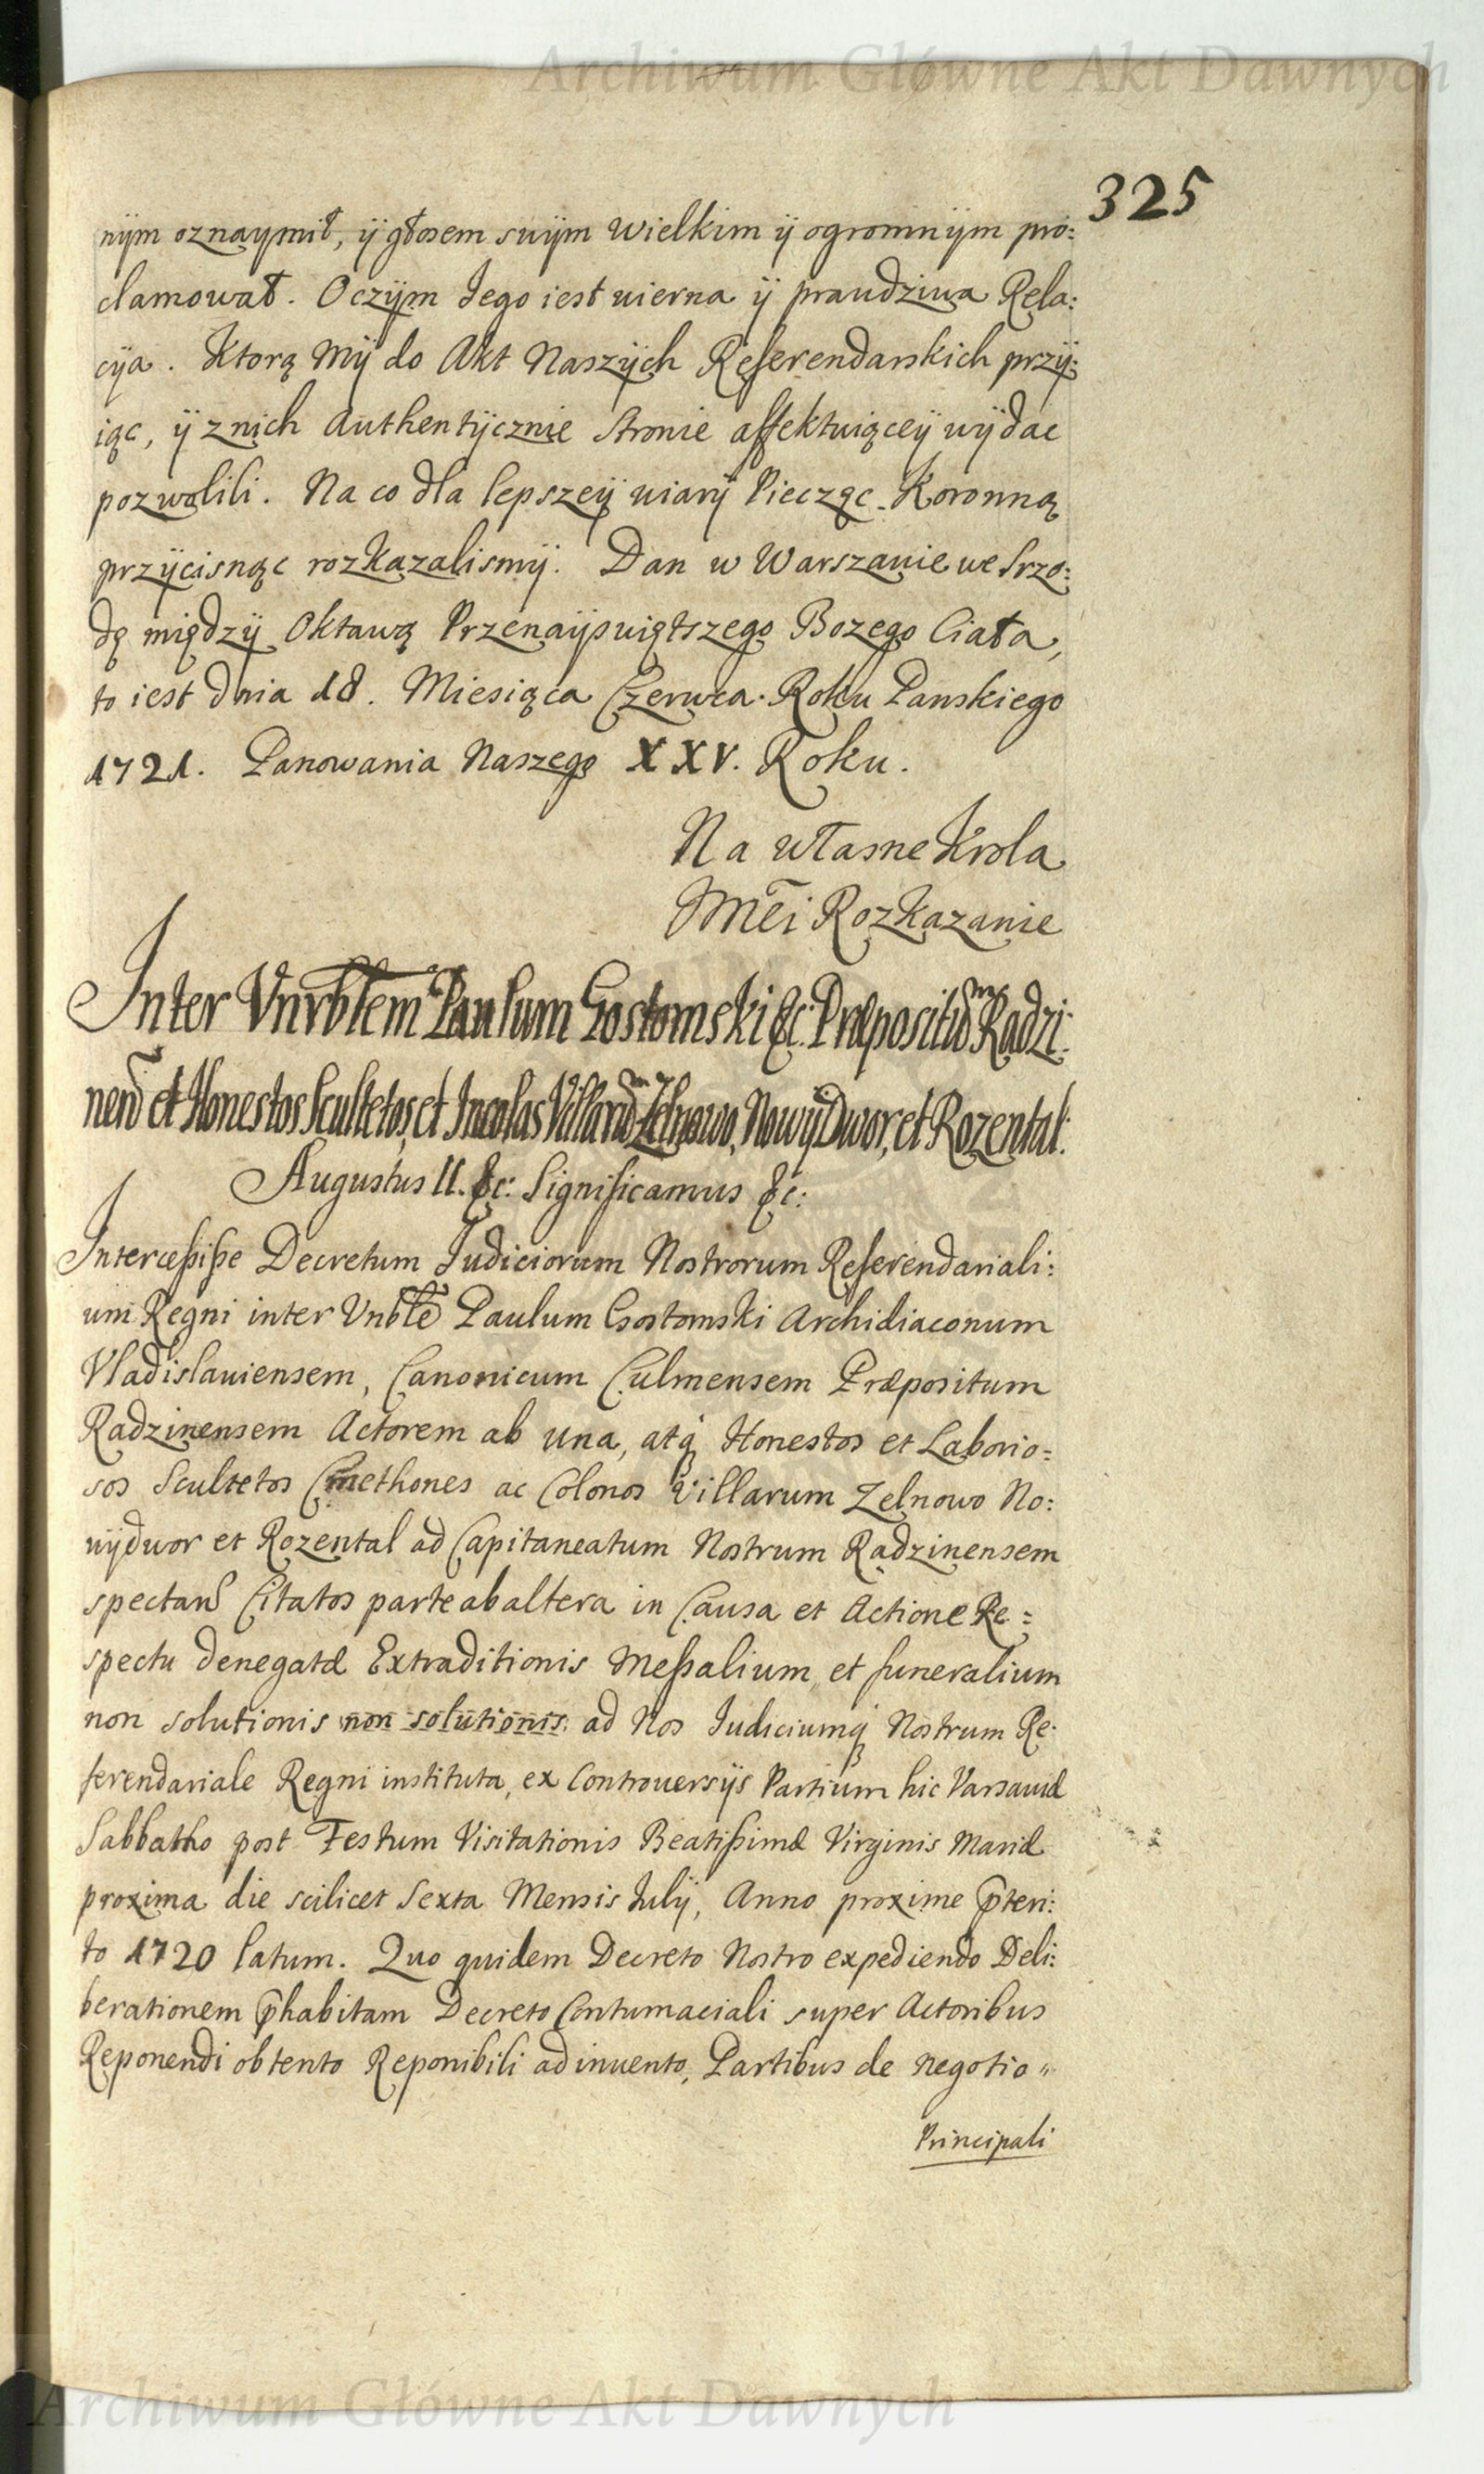 Archiwum Główne Akt Dawnych
325
nÿm oznaÿmił, ÿ głosem swÿm wielkim ÿ ogromnÿm pro:
clamował. O czÿm Jego iest wierna ÿ prawdziwa Rela:
cÿa. Ktorą Mÿ do Akt Naszÿch Referendarskich przÿ:
iąc, ÿ z nich Authentÿcznie stronie affektuiąceÿ wÿdac
pozwolili. Na co dla lepszeÿ wiarÿ Pieczęc Koronną
przÿcisnąc rozkazalismÿ. Dan w Warszawie we Srzo:
dę międzÿ Oktawą Przenaÿswiętszego Bozego Ciała,
to iest dnia 18. Miesiąca Czerwca. Roku Panskiego
1721. Panowania Naszego XXV. Roku.
Na własne Krola
Mci Rozkazanie
Inter Vnrblem Paulum Gostomski &c. Præpositum Radzi:
nen et Honestos Scultetos, et Incolas Villarum Zelnowo, Nowÿ Dwor, et Rozental.
Augustus II. &c: Significamus &c:
Intercessisse Decretum Judiciorum Nostrorum Referendariali:
um Regni inter Vnble Paulum Gostomski Archidiaconum
Vladislaviensem, Canonicum Culmensem Præpositum
Radzinensem Actorem ab una, atq Honestos et Laborio=
sos Scultetos Cmethones ac Colonos Villarum Zelnowo No:
wÿdwor et Rozental ad Capitaneatum Nostrum Radzinensem
spectan Citatos parte ab altera in Causa et Actione Re=
spectu denegatæ Extraditionis Messalium et funeralium
non solutionis non solutionis ad Nos Judiciumq Nostrum Re:
ferendariale Regni instituta, ex Controversÿs Partium hic Varsaviæ
Sabbatho post Festum Visitationis Beatissimæ Virginis Mariæ
proxima die scilicet Sexta Mensis Julÿ, Anno proxime pteri:
to 1720 latum. Quo quidem Decreto Nostro expediendo Deli:
berationem phabitam Decreto Contumaciali super Actoribus
Reponendi obtento Reponibili adinvento, Partibus de negotio
Principali
Archiwum Główne Akt Dawnych